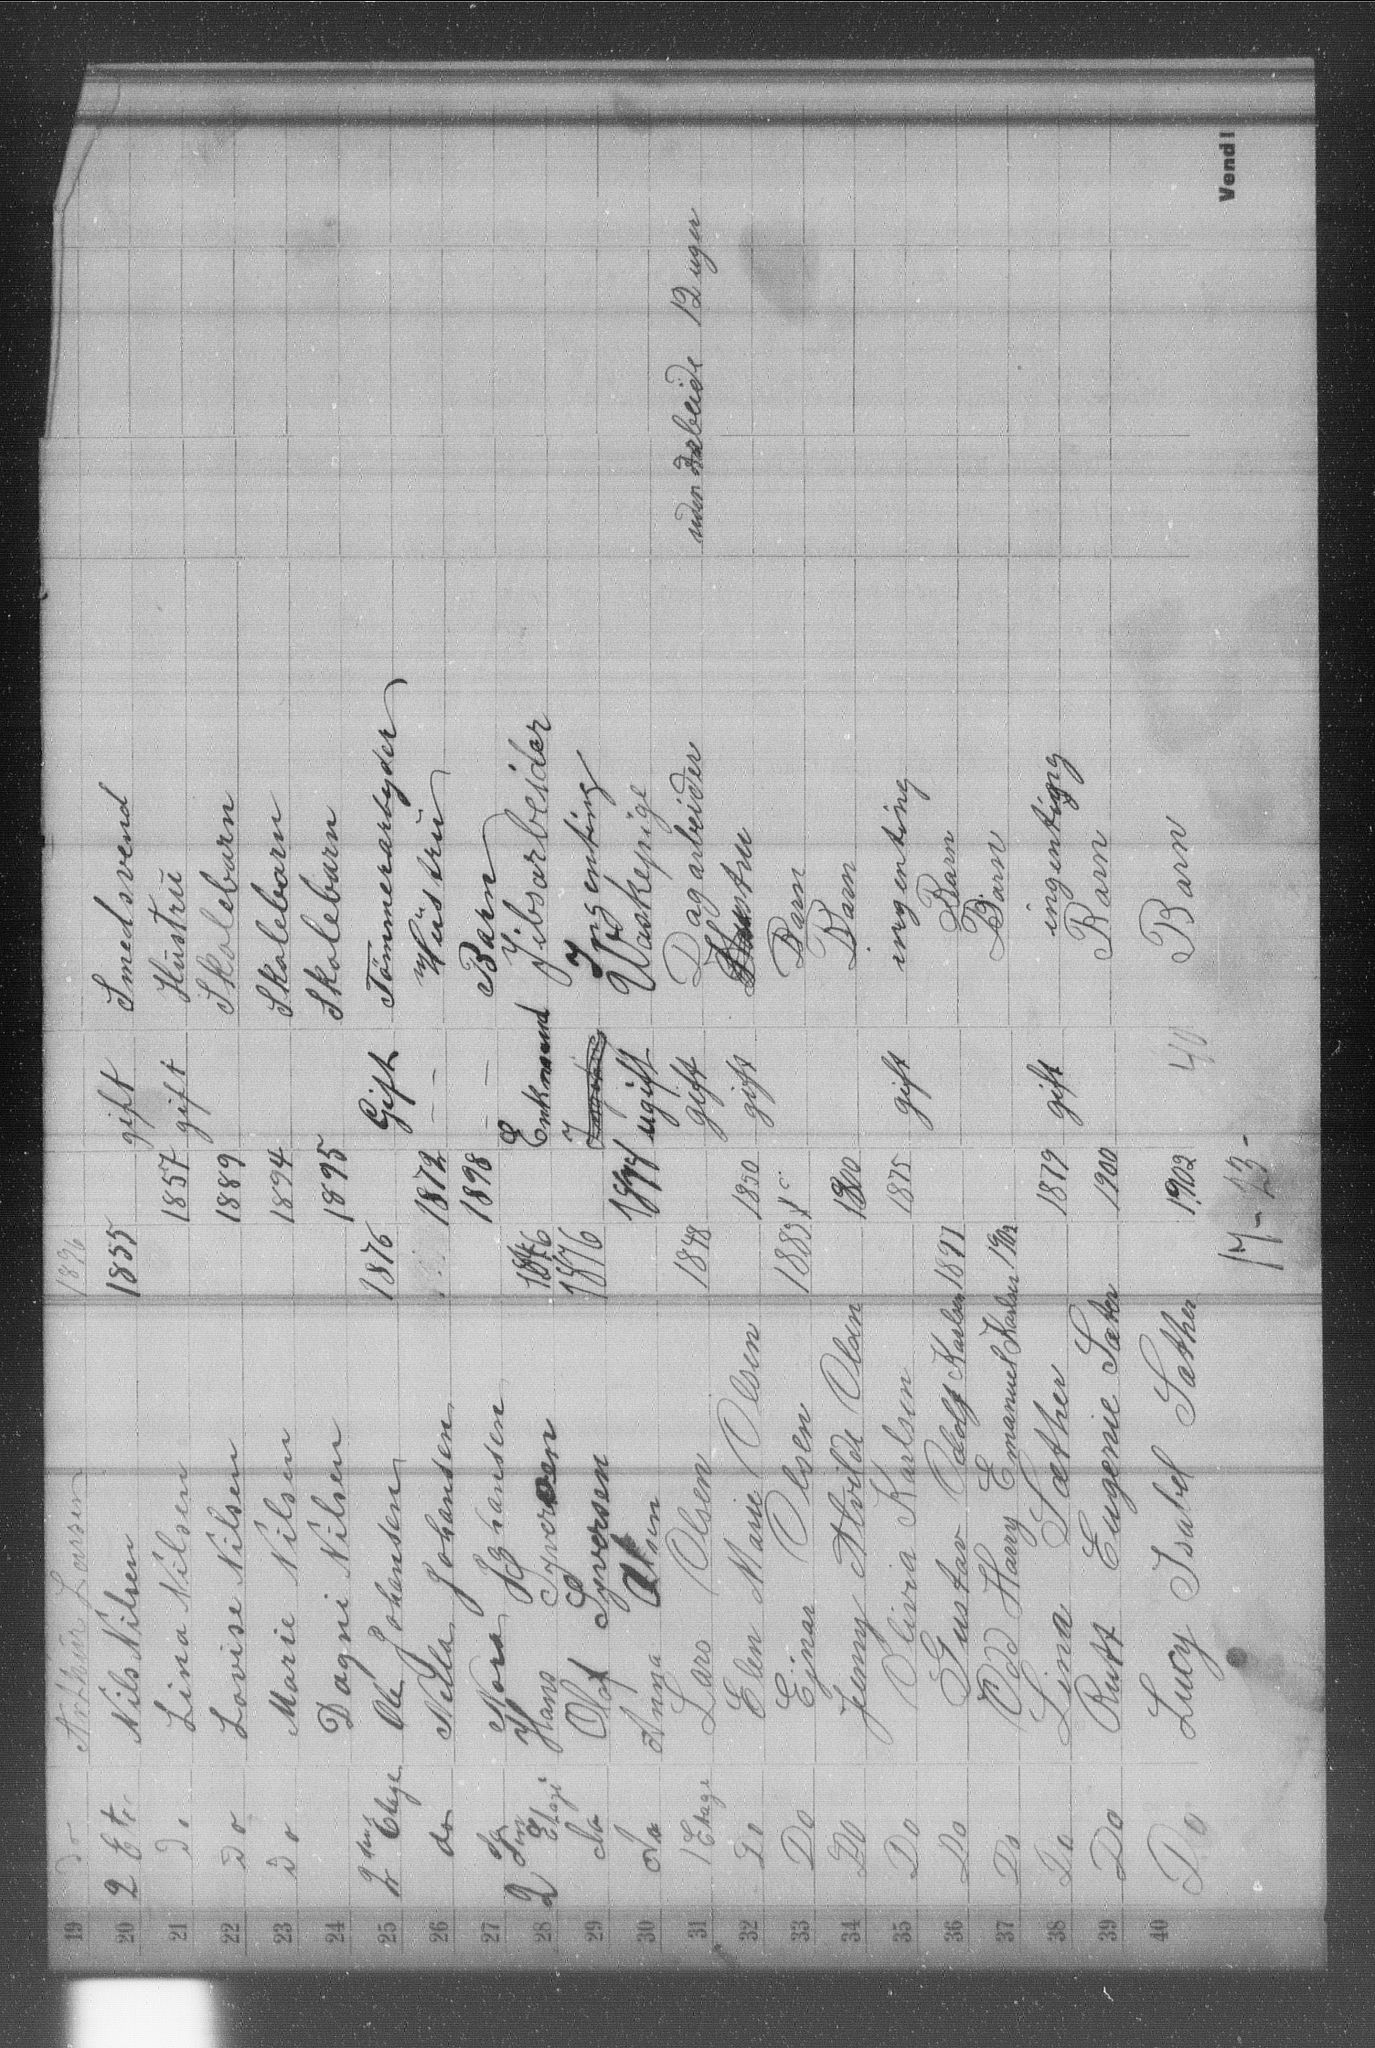 19 Do Arthur Larsen 1896
20 2 Etr. Nils Nilsen 1855 gift Smedsvend
21 Do Lina Nilsen 1857 gift Hustru
22 Do Lovise Nilsen 1889 Skolebarn
23 Do Marie Nilsen 1894 Skolebarn
24 Dagni Nilsen 1895 Skolebarn
25 2den Etage Ole Johansen 1876 Gift Tömmerarbyder
26 do Nilla Johansen 1872 – – Hustru
27 Nora Johansen 1898 – – Barn
28 2 Etagi Hans Syversen 1846 Enkemand Jibsarbeider
29 Do Olaf Syversen 1876 Ingenting
30 Do Anna Olsen ugift Vaskepige
31 1 Etage Lars Olsen 1848 gift Dagarbeider uden arbeide 12 uger
32 Do Elen Marie Olsen 1850 gift Hustru
33 Do Ejnar Olsen 1889 Barn
34 Do Jenny Alvilde Olsen 1900 Barn
35 Do Olivia Karlsen 1875 gift ingenting
36 Do Gustav Adolf Karlsen 1897 Barn
37 Do Odd Harry Emanuel Karlsen 1902 Barn
38 Do Lina Sæther 1879 gift ingenting
39 Do Rutt Eugenie Sæter 1900 Barn
40 Do Lucy Isabel Sæther 1902 Barn
40
17 - 23 -
Vend!